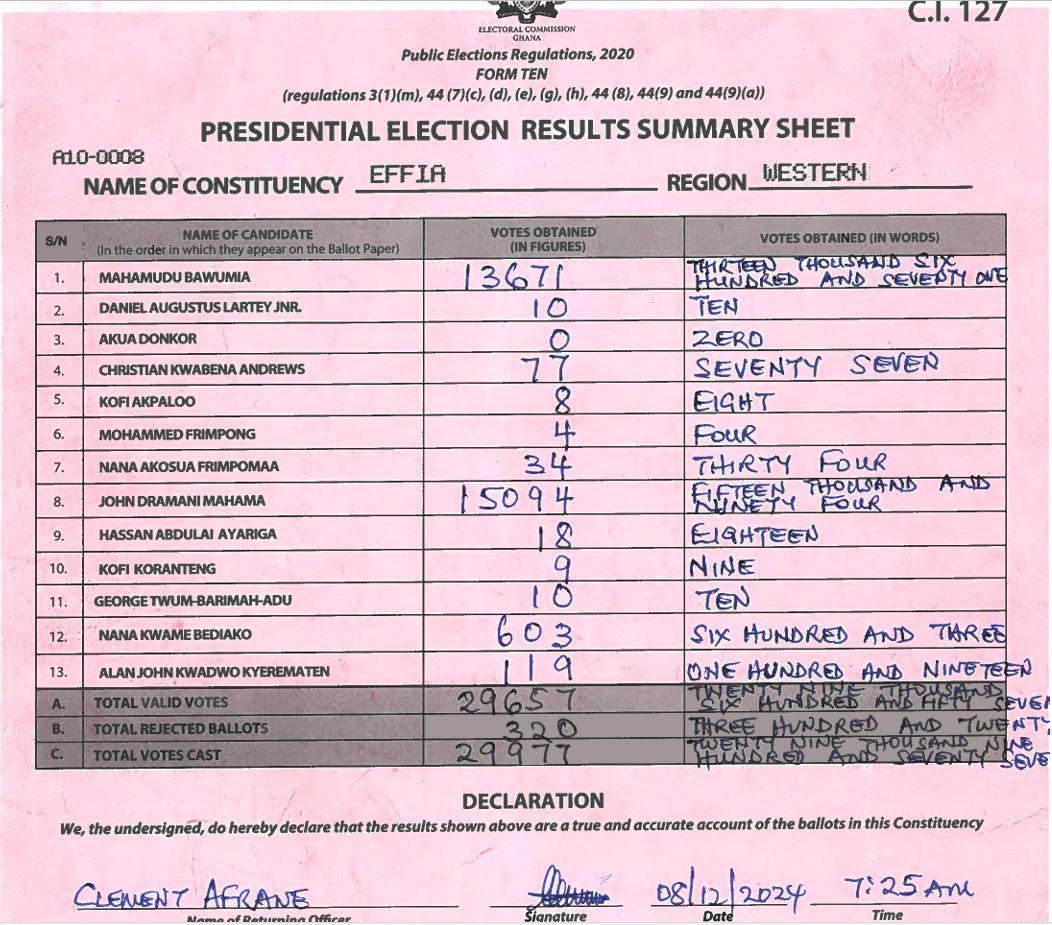 C.I. 127
ELECTORAL COMMISSION
GHANA
Public Elections Regulations, 2020
FORM TEN
(regulations 3(1)(m), 44 (7)(c), (d), (e), (g), (h), 44 (8), 44(9) and 44(9)(a))
PRESIDENTIAL ELECTION RESULTS SUMMARY SHEET
A10-0008
NAME OF CONSTITUENCY EFFIA REGION WESTERN
S/N NAME OF CANDIDATE (In the order in which they appear on the Ballot Paper) VOTES OBTAINED (IN FIGURES) VOTES OBTAINED (IN WORDS)
1. MAHAMUDU BAWUMIA 13671 THIRTEEN THOUSAND SIX HUNDRED AND SEVENTY ONE
2. DANIEL AUGUSTUS LARTEY JNR. 10 TEN
3. AKUA DONKOR 0 ZERO
4. CHRISTIAN KWABENA ANDREWS 77 SEVENTY SEVEN
5. KOFI AKPALOO 8 EIGHT
6. MOHAMMED FRIMPONG 4 FOUR
7. NANA AKOSUA FRIMPOMAA 34 THIRTY FOUR
8. JOHN DRAMANI MAHAMA 15094 FIFTEEN THOUSAND AND NINETY FOUR
9. HASSAN ABDULAI AYARIGA 18 EIGHTEEN
10. KOFI KORANTENG 9 NINE
11. GEORGE TWUM-BARIMAH-ADU 10 TEN
12. NANA KWAME BEDIAKO 603 SIX HUNDRED AND THREE
13. ALAN JOHN KWADWO KYEREMATEN 119 ONE HUNDRED AND NINETEEN
A. TOTAL VALID VOTES 29657 TWENTY NINE THOUSAND SIX HUNDRED AND FIFTY SEVEN
B. TOTAL REJECTED BALLOTS 320 THREE HUNDRED AND TWENTY
C. TOTAL VOTES CAST 29977 TWENTY NINE THOUSAND NINE HUNDRED AND SEVENTY SEVE
DECLARATION
We, the undersigned, do hereby declare that the results shown above are a true and accurate account of the ballots in this Constituency
CLEMENT AFRANE 08/12/2024 7:25 AM
Name of Returning Officer Signature Date Time